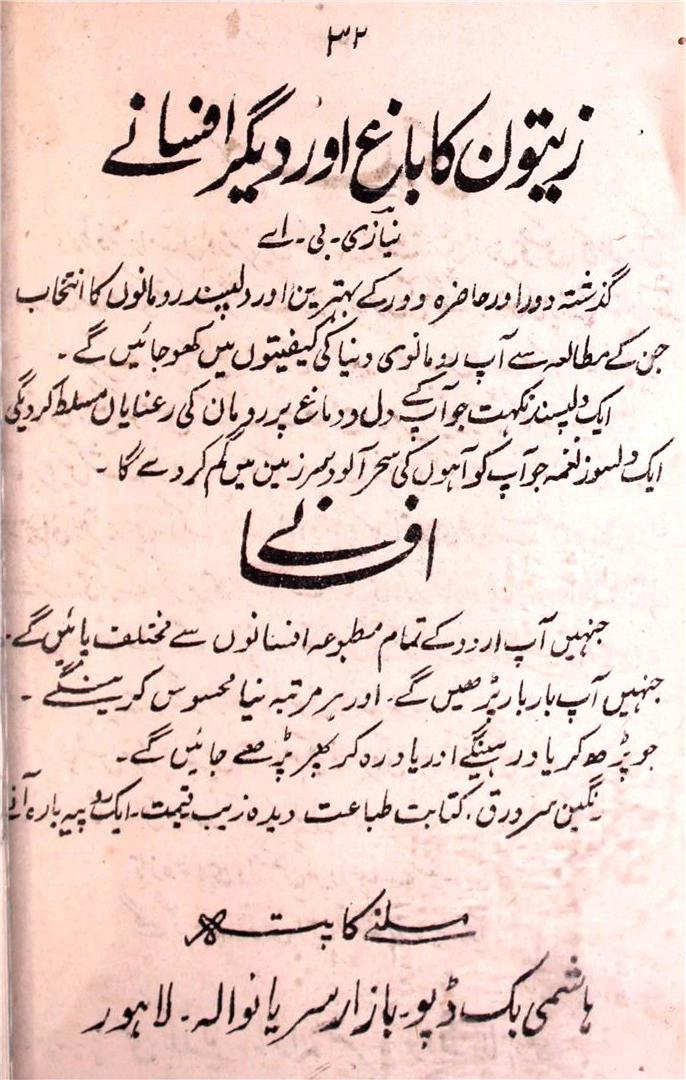 ۳۲
زیتون کا باغ اور دیگر افسانے
نیازی۔ بی۔ اے
گذشتہ دور اور حاضرہ دور کے بہترین اور دلپسند رومانوں کا انتخاب
جن کے مطالعہ سے آپ رومانوی دنیا کی کیفیتوں میں کھو جائیں گے۔
ایک دلپسند نکہت جو آپ کے دل و دماغ پر رومان کی رعنایاں مسلط کر دیگی
ایک دلسوز نغمہ جو آپ کو آہوں کی سحر آلود سرزمین میں گم کر دے گا۔
افسانے
جنہیں آپ اردو کے تمام مطبوعہ افسانوں سے مختلف پائیں گے۔
جنہیں آپ بار بار پڑھیں گے۔ اور ہر مرتبہ نیا محسوس کرینگے۔
جو پڑھ کر یاد رہینگے اور یاد رہ کر پھر پڑھے جائیں گے۔
رنگین سرورق، کتابت طباعت دیدہ زیب قیمت۔ ایک روپیہ بارہ آنے
ملنے کا پتہ
ہاشمی بک ڈپو۔ بازار سریانوالہ۔ لاہور